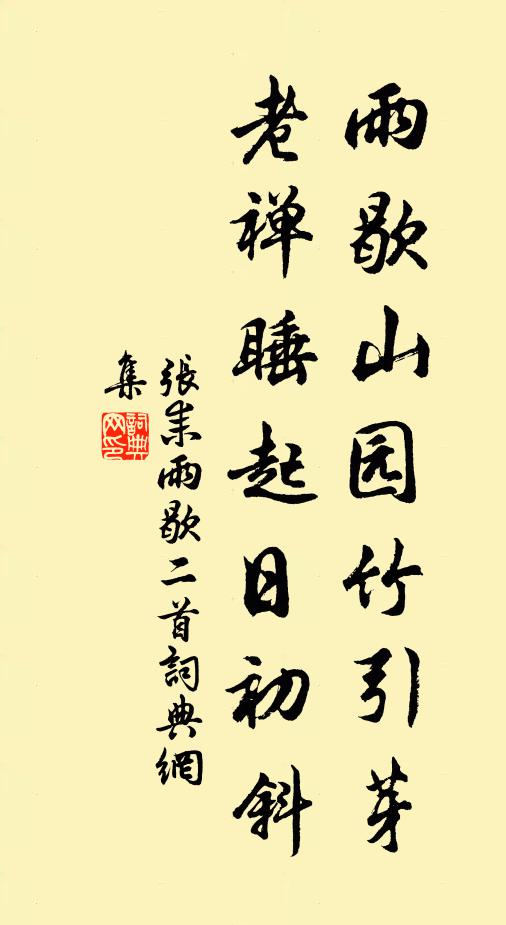 雨歇山园竹引芽
老禅睡起日初斜
張耒雨歇二首詞典網
集
詞典
网印